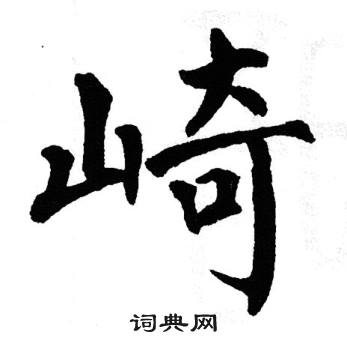 崎
词典网